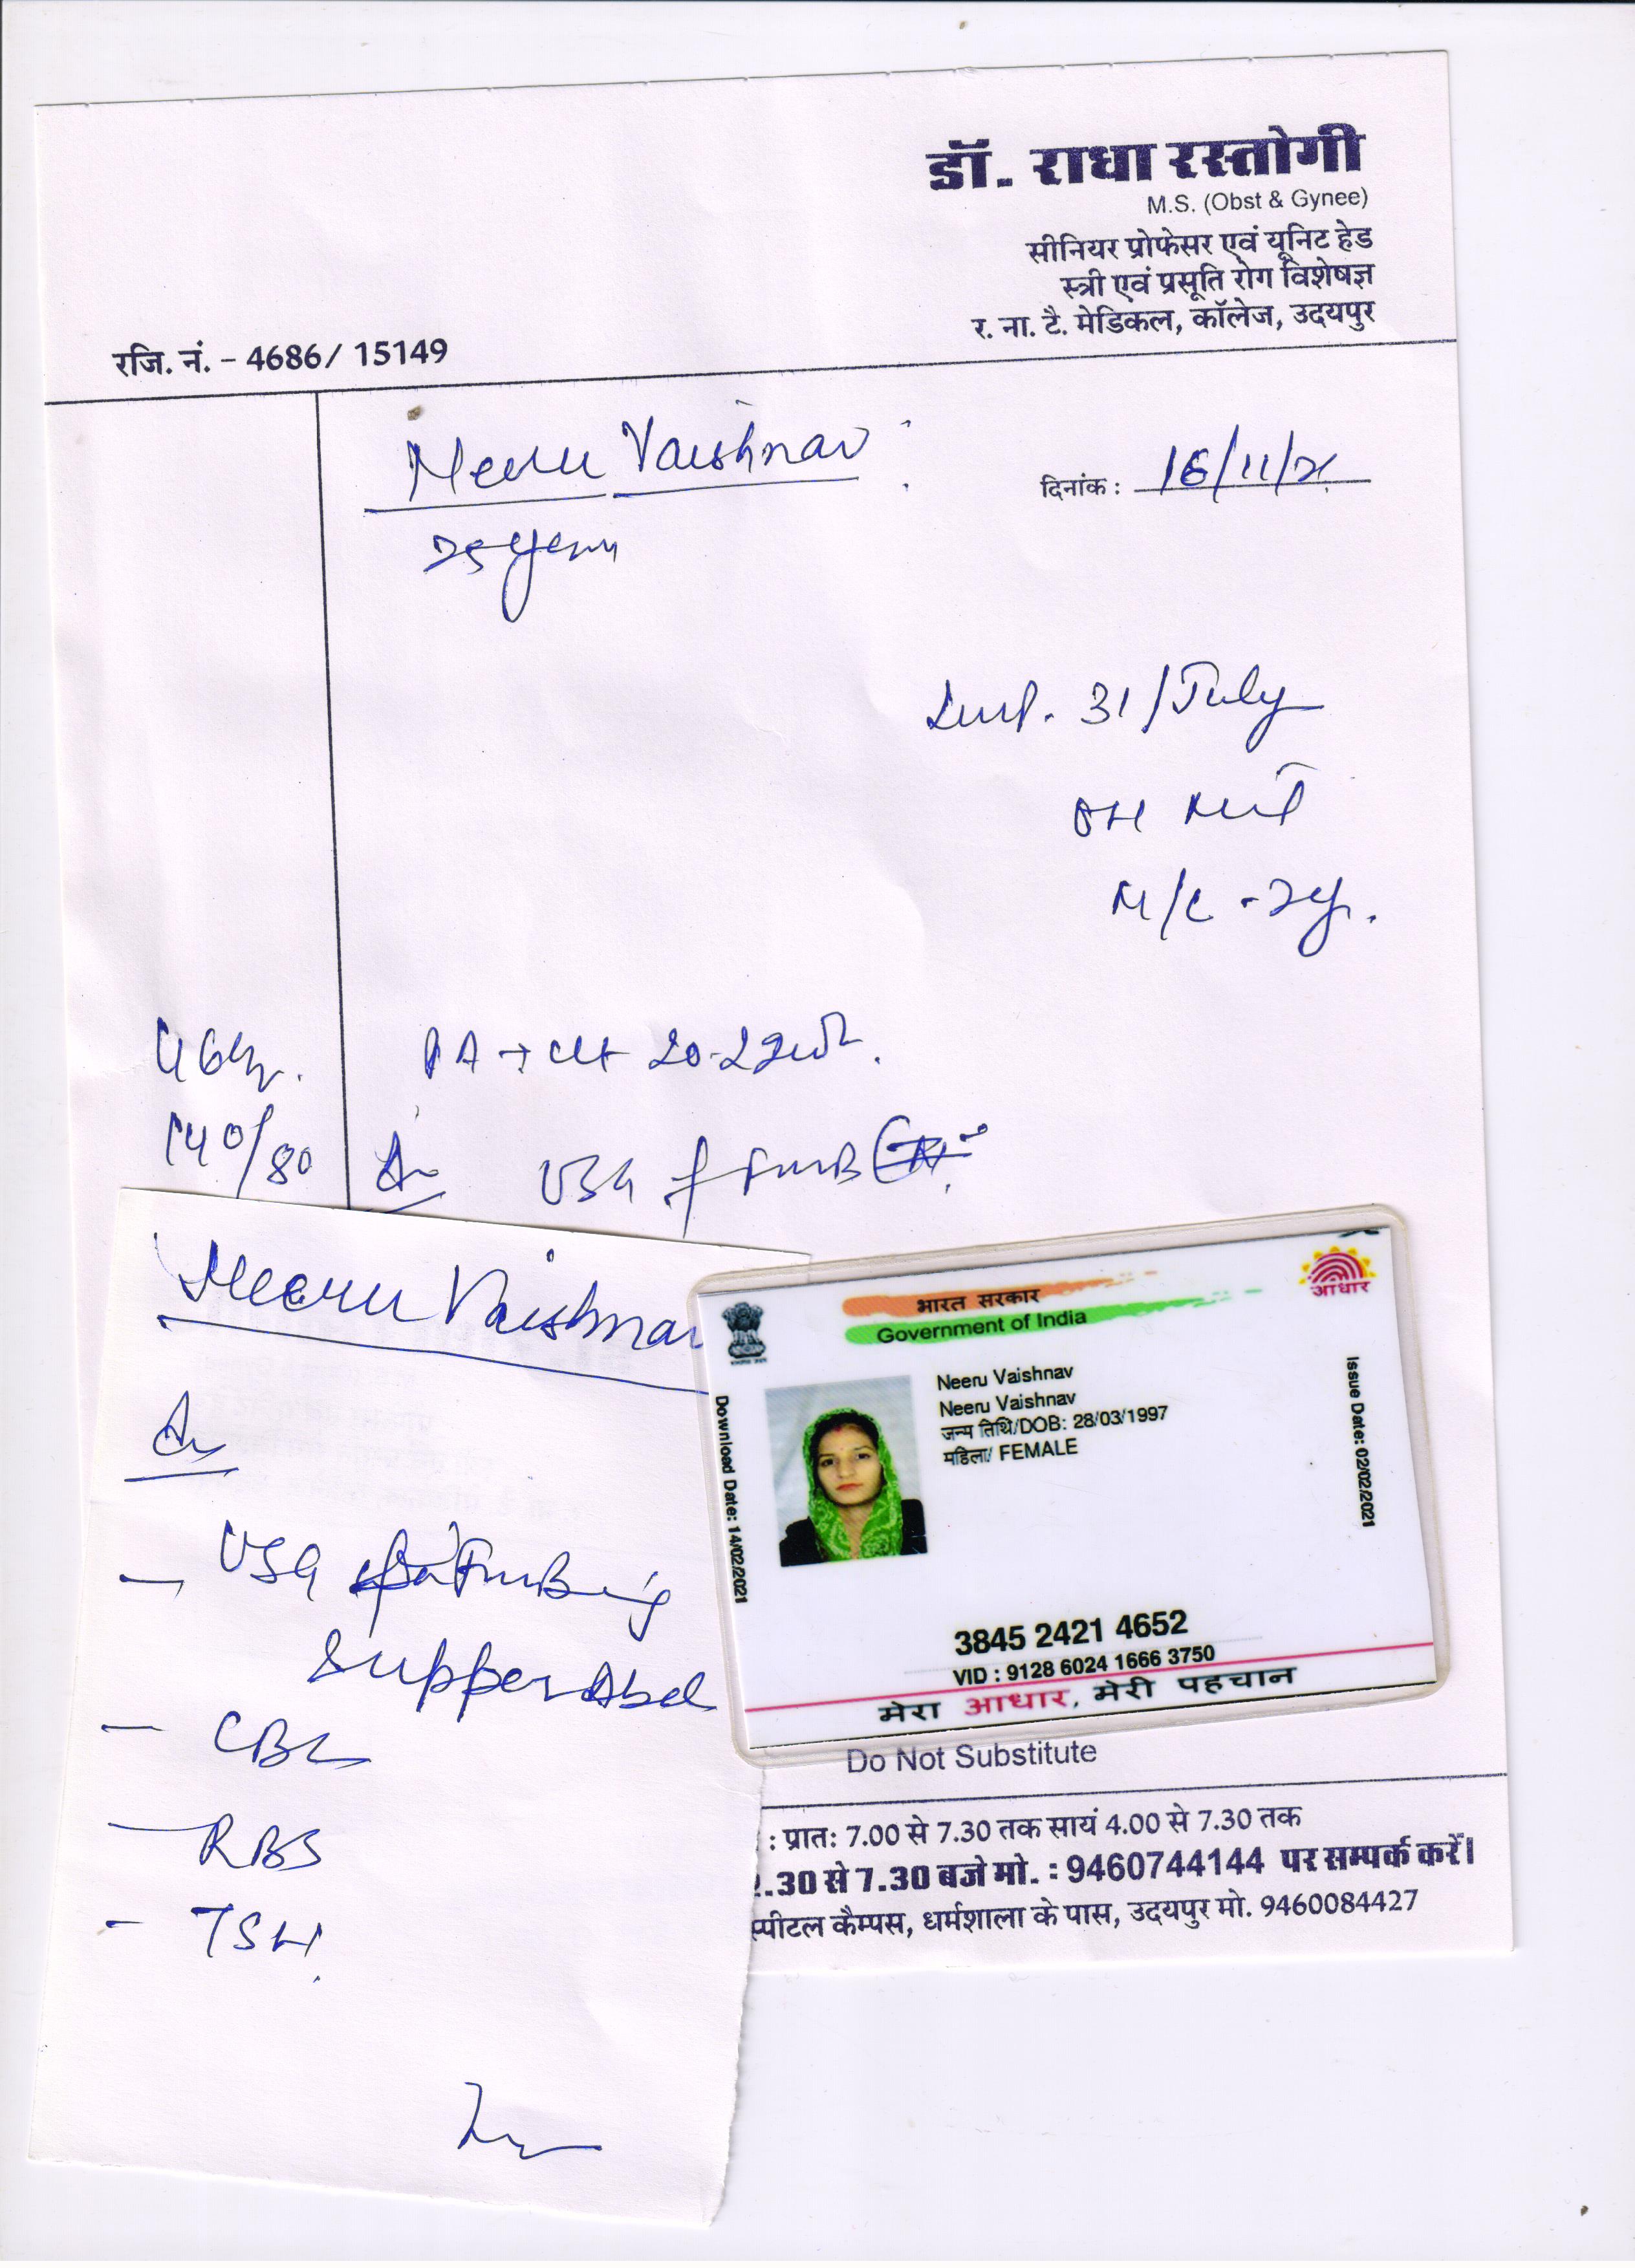 डॉ. राधा रस्तोगी
M.S. (Obst & Gynee)
सीनियर प्रोफेसर एवं यूनिट हेड
स्त्री एवं प्रसूति रोग विशेषज्ञ
र. ना. टै. मेडिकल, कॉलेज, उदयपुर
रजि. नं. - 4686/ 15149
Neeru Vaishnav
दिनांक : 16/11/21
25 years
Lmp. 31/July
M/C - 2yr.
PA → 20-22
140/80
USG FWB
Neeru Vaishnav
USG FWB
upper Abd
- CBC
- RBS
- TSH
भारत सरकार
Government of India
आधार
Neeru Vaishnav
Neeru Vaishnav
जन्म तिथि/DOB: 28/03/1997
महिला/ FEMALE
Download Date: 14/02/2021
Issue Date: 02/02/2021
3845 2421 4652
VID : 9128 6024 1666 3750
मेरा आधार, मेरी पहचान
Do Not Substitute
: प्रातः 7.00 से 7.30 तक सायं 4.00 से 7.30 तक
.30 से 7.30 बजे मो. : 9460744144 पर सम्पर्क करें।
स्पीटल कैम्पस, धर्मशाला के पास, उदयपुर मो. 9460084427